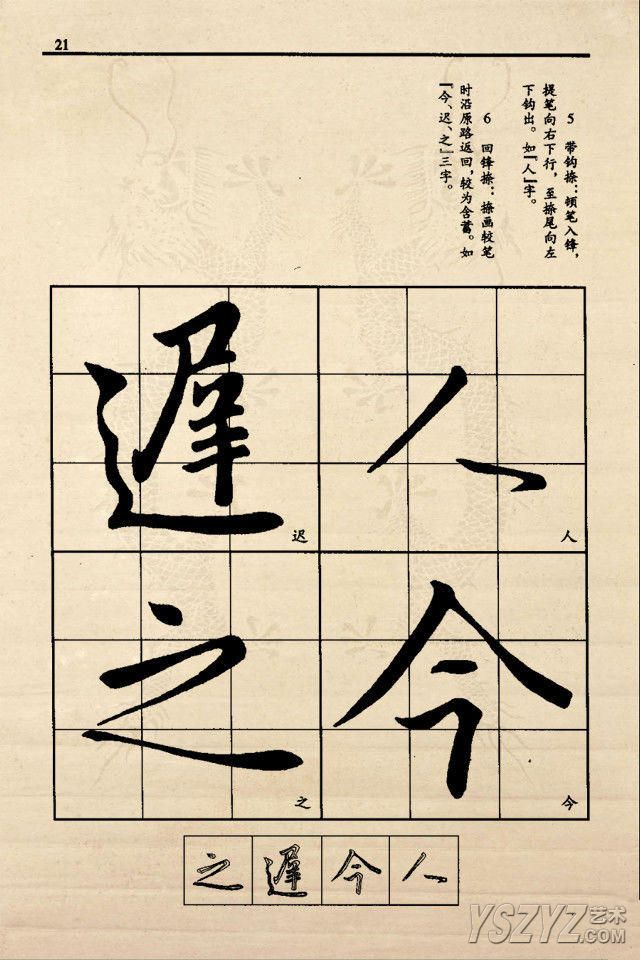 21
5 带钩捺：顿笔入锋，
提笔向右下行，至捺尾向左
下钩出。如『人』字。
6 回锋捺：捺画较笔
时沿原路返回，较为含蓄。如
『今、迟、之』三字。
人
人
遲
迟
今
今
之
之
之遲今人
YSZYZ艺术
.COM